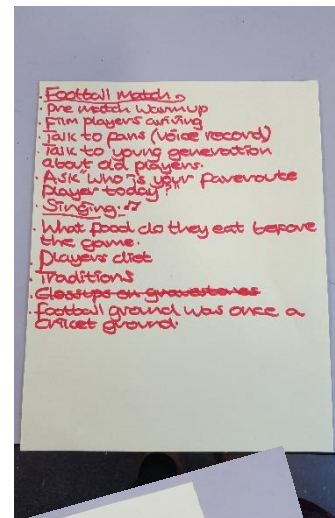 · Football Match
· pre match warmup
· Film players arriving
· Talk to fans (voice record)
· Talk to young generation
about old players.
· Ask "who is your faveroute
player today?"
· Singing
· What food do they eat before
the game.
· Players diet
· Traditions
· Closeups on gravestones
· Football ground was once a
cricket ground.